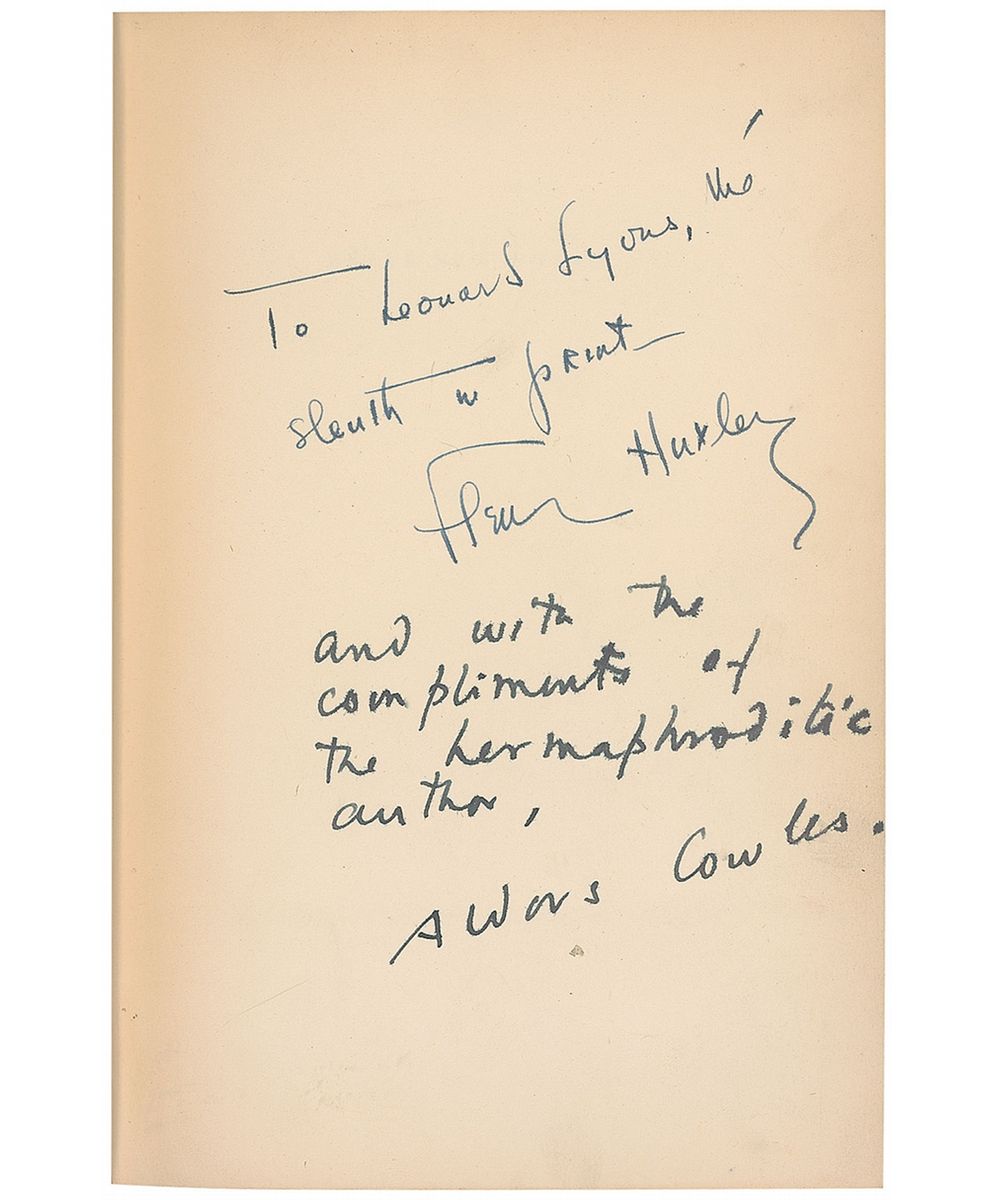 To Leonard Lyons, the
sleuth in print
Fleur Huxley
and with the
compliments of
the hermaphroditic
author,
Aldous Cowles.